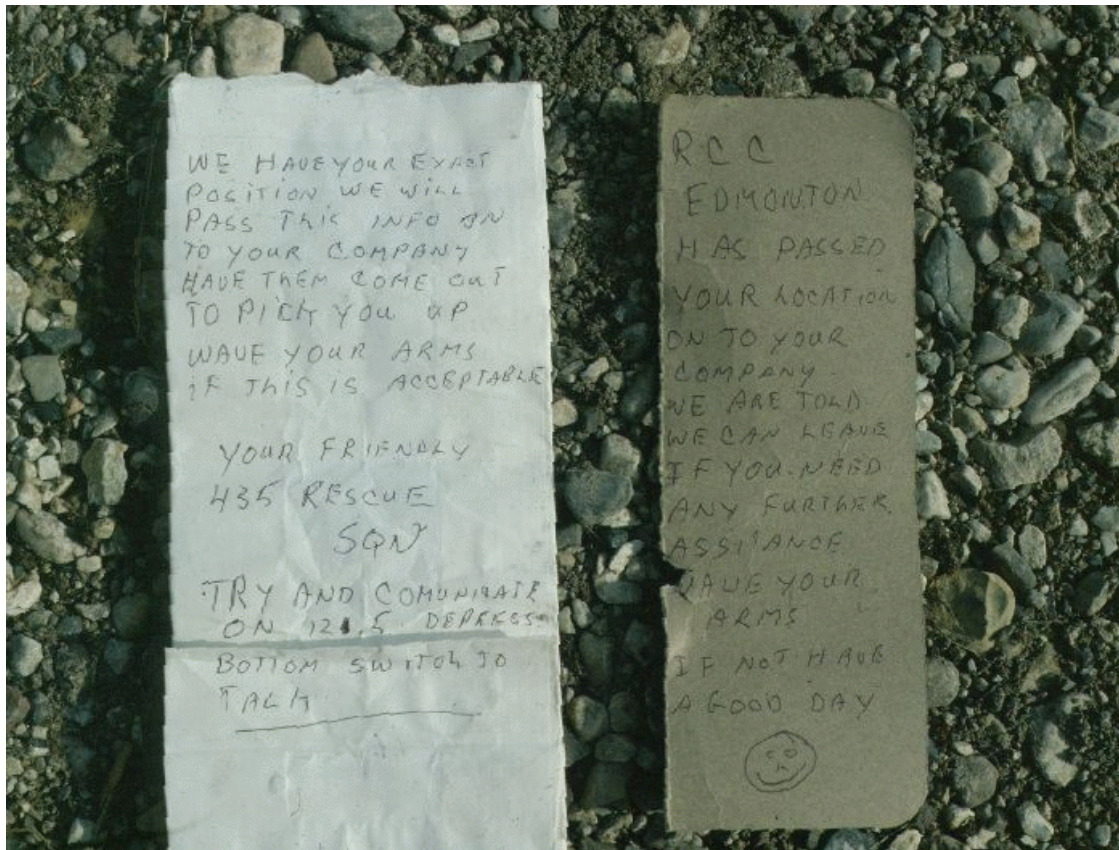 WE HAVE YOUR EXACT
POSITION WE WILL
PASS THIS INFO ON
TO YOUR COMPANY
HAVE THEM COME OUT
TO PICK YOU UP
WAVE YOUR ARMS
IF THIS IS ACCEPTABLE
YOUR FRIENDLY
435 RESCUE
SQN
TRY AND COMUNICATE
ON 121.5 DEPRESS
BOTTOM SWITCH TO
TALK
RCC
EDMONTON
HAS PASSED
YOUR LOCATION
ON TO YOUR
COMPANY.
WE ARE TOLD
WE CAN LEAVE
IF YOU NEED
ANY FURTHER
ASSITANCE
WAVE YOUR
ARMS
IF NOT HAVE
A GOOD DAY